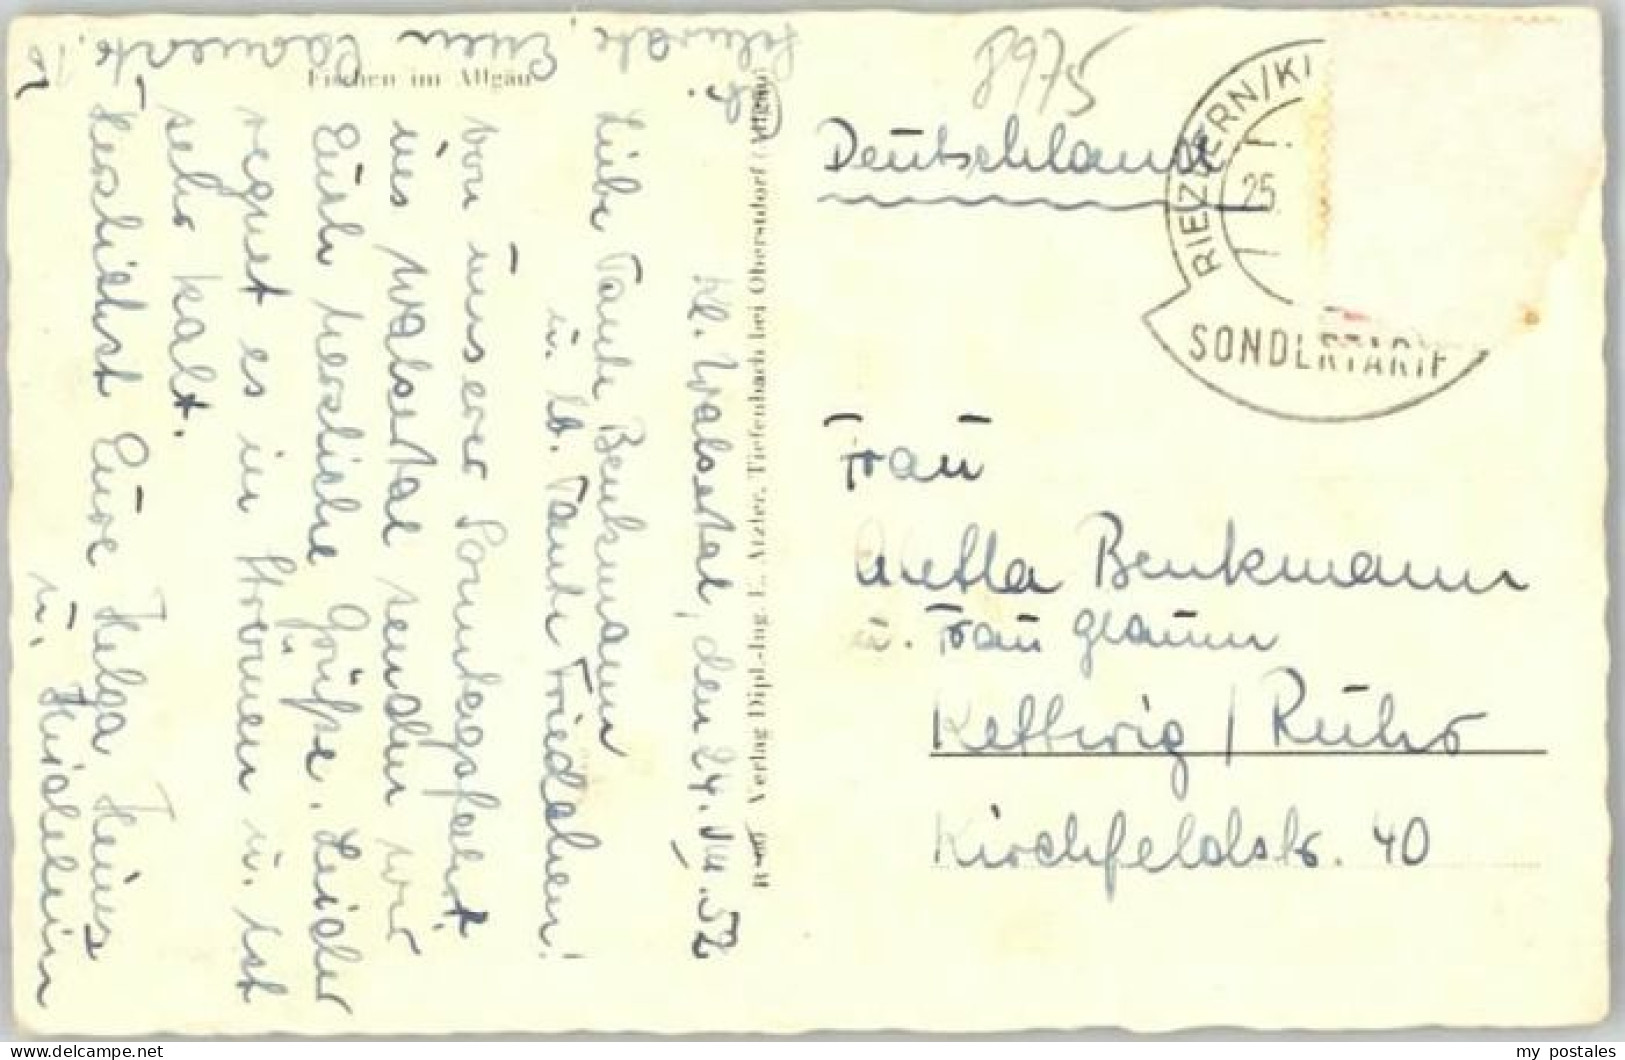 Kl. Walsertal, den 24.VIII.52
Liebe Tante Benkmann
u. lb. Tante Friedchen!
Von unserer Sonntagsfahrt
ins Walsertal senden wir
Euch herzliche Grüße. Leider
regnet es in Strömen u. ist
sehr kalt.
Herzlichst Eure Helga Heinz
u.
Fischen im Allgäu
Verlag Dipl.-Ing. E. Atzler, Tiefenbach bei Oberstdorf (Allgäu)
8975
Deutschland
RIEZLERN/KL
25.
SONDERTARIF
Frau
Aletta Benkmann
u. Frau Glaum
Kettwig / Ruhr
Kirchfeldstr. 40
my postales